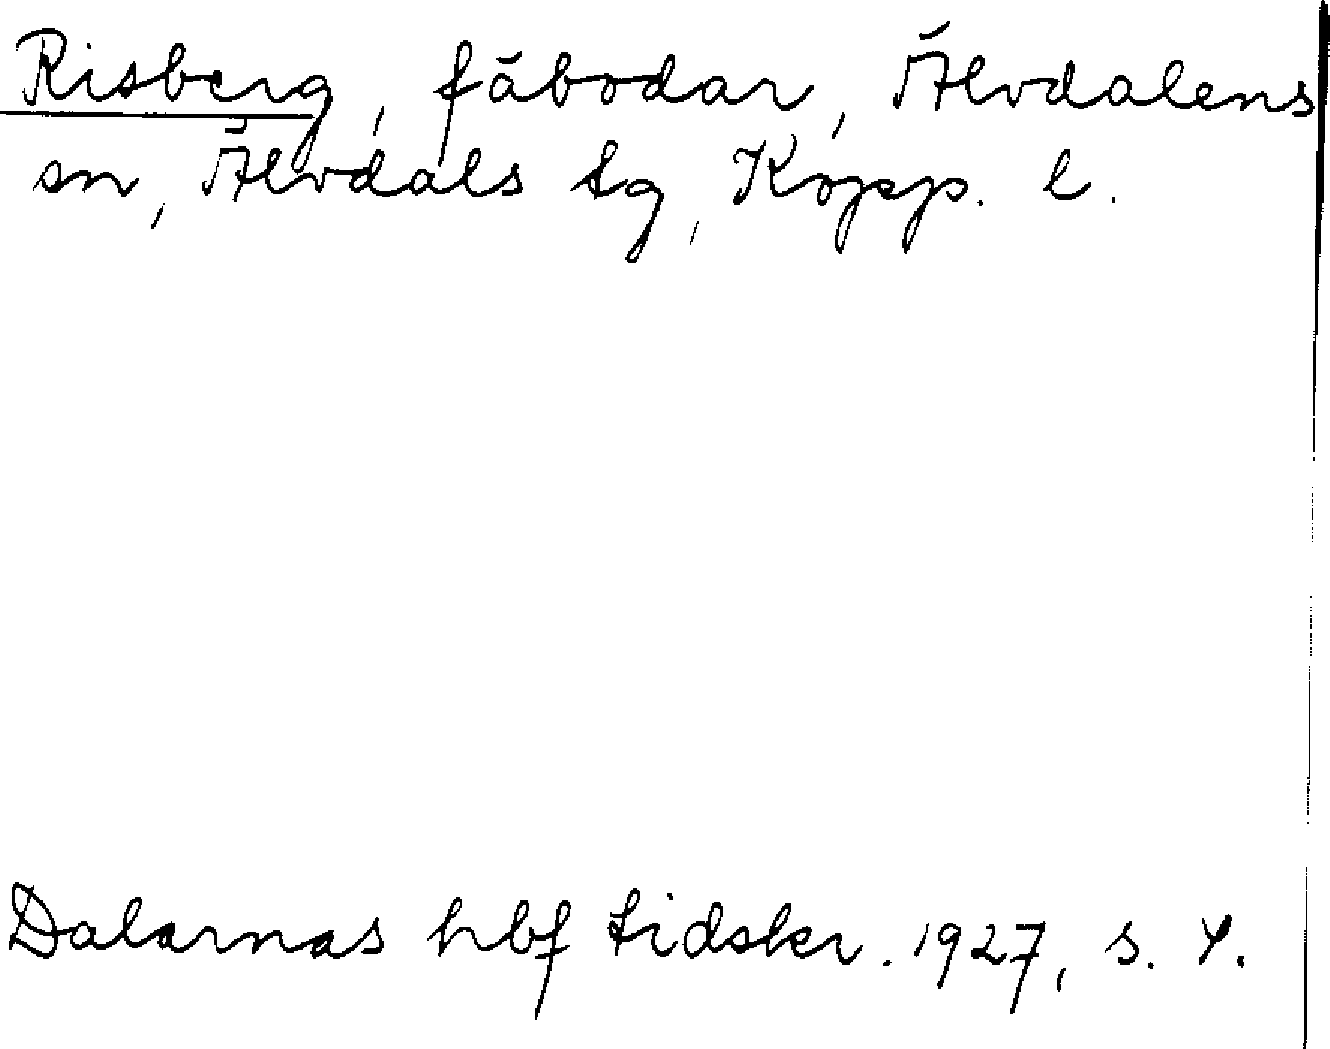 Risberg, fäbodar, Älvdalens
sn, Älvdals tg, Kopp. l.
Dalarnas hbf tidskr. 1927, s. 4.